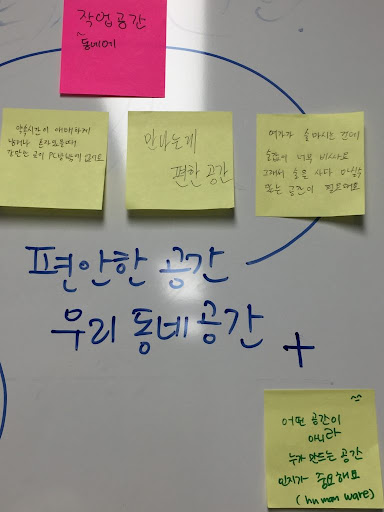 작업공간
~
동네에
약속시간이 애매하게
남거나 혼자있을때
갈만한 곳이 PC방밖에 없어요
만나는게
편한 공간
여가가 술 마시는 건데
술집이 너무 비싸요
그래서 술을 사다 마실수
있는 공간이 필요해요
편안한 공간
우리 동네 공간
+
^^
어떤 공간이
아니라
누가 만드는 공간
인지가 중요해요
(human ware)